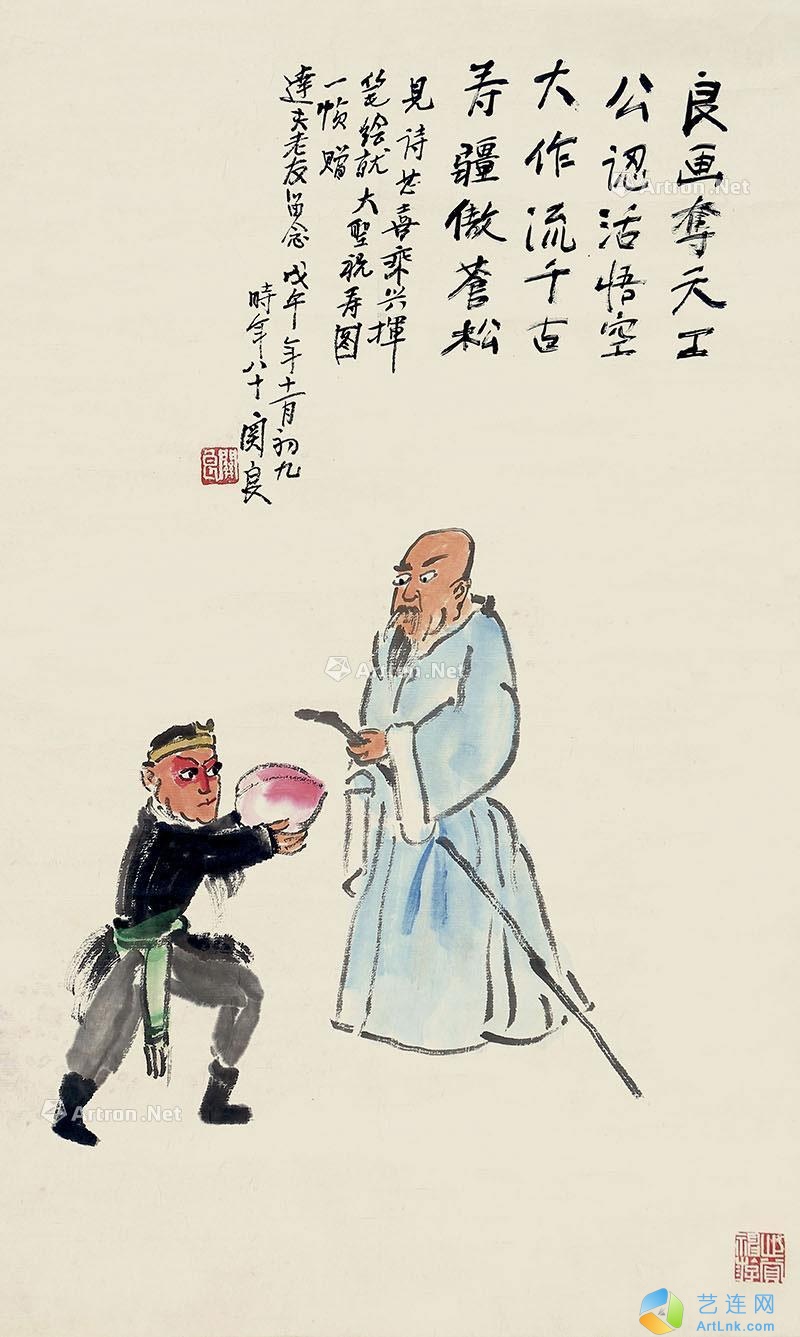 良画奪天工
公認活悟空
大作流千古
寿疆傲蒼松
見诗甚喜乘兴揮
笔绘就大聖祝寿图
一帧贈
達夫老友留念 戊午年十一月初九
時年八十 関良
關良
Artron.Net
Artron.Net
Artron.Net
艺连网
ArtLnk.com